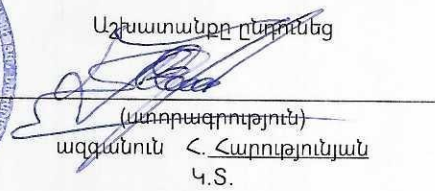 Աշխատանքը ընդունեց
(ստորագրություն)
ազգանուն Հ. Հարությունյան
Կ.Տ.